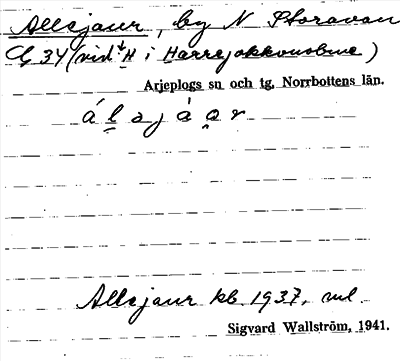 Allejaur, by N Storavan
C, 34 (vid ↓H i Harrejokkuolme)
Arjeplogs sn och tg, Norrbottens län.
á l ə j à a r
Allejaur kb. 1937, ml.
Sigvard Wallström, 1941.